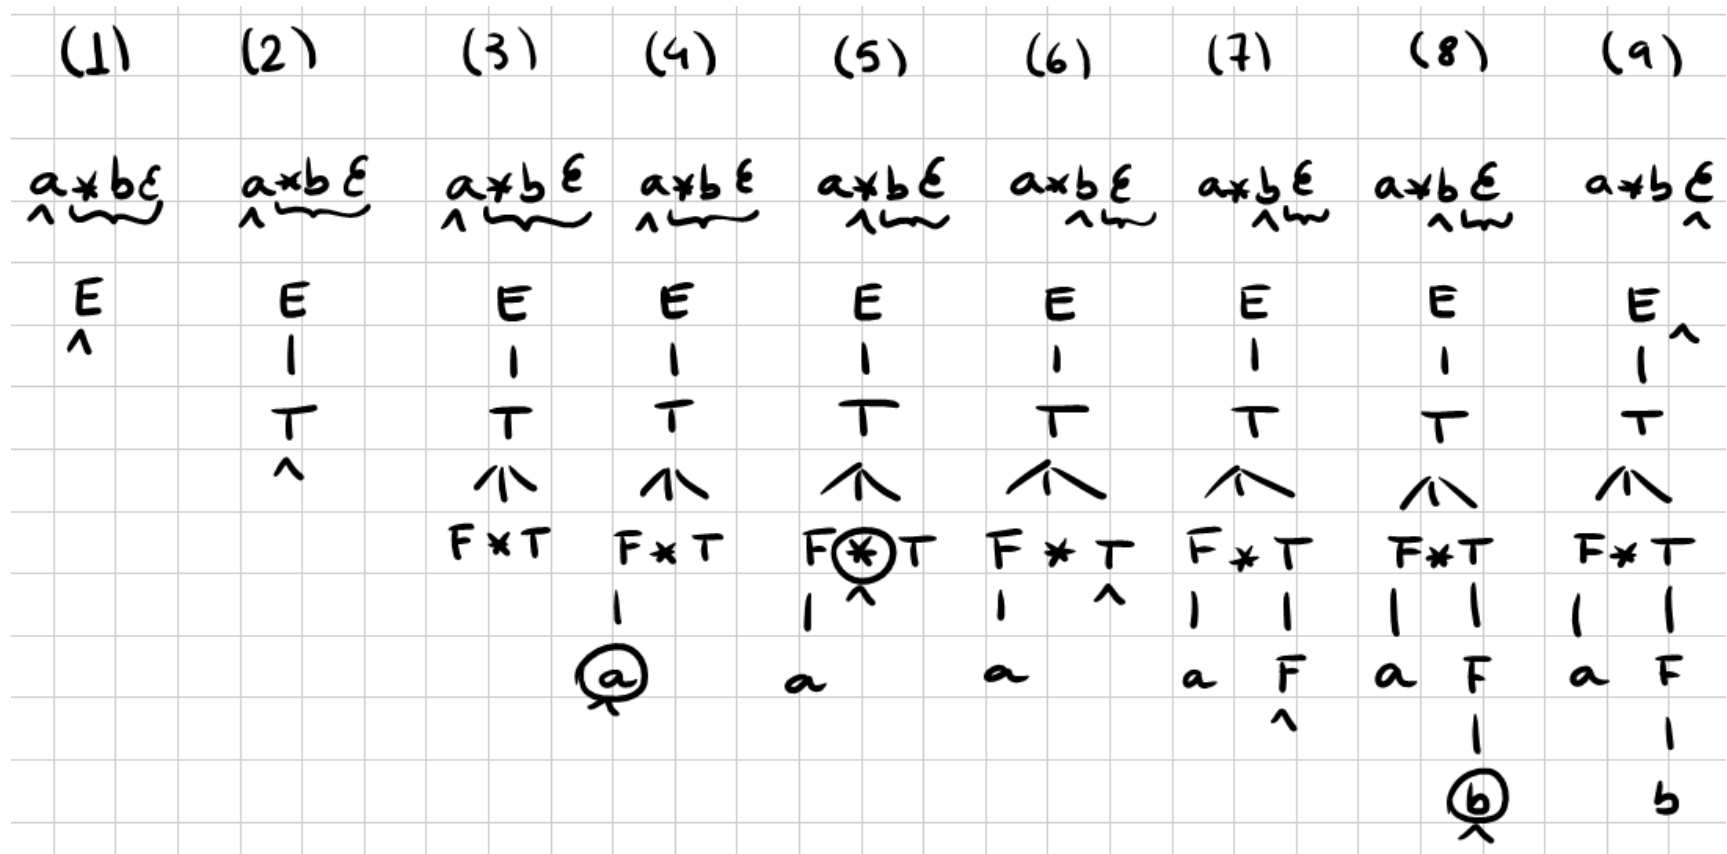 (1) (2) (3) (4) (5) (6) (7) (8) (9)
a*bε a*bε a*bε a*bε a*bε a*bε a*bε a*bε a*bε
^ ^ ^ ^ ^ ^ ^ ^ ^
E E E E E E E E E
^ ^
| | | | | | | |
T T T T T T T T
^
F*T F*T F*T F*T F*T F*T F*T
^ ^
| | | | | | | | |
a a a a F a F a F
^ ^
| |
b b
^